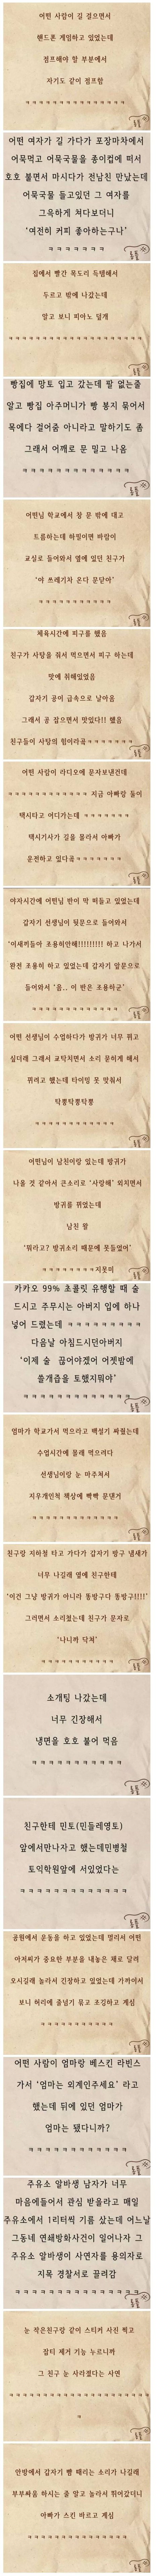 어떤 사람이 길 걸으면서
핸드폰 게임하고 있었는데
점프해야 할 부분에서
자기도 같이 점프함
ㅋㅋㅋㅋㅋㅋㅋㅋㅋㅋㅋㅋㅋㅋㅋ
어떤 여자가 길 가다가 포장마차에서
어묵먹고 어묵국물을 종이컵에 떠서
호호 불면서 마시다가 전남친 만났는데
어묵국물 들고있던 그 여자를
그윽하게 쳐다보더니
'여전히 커피 좋아하는구나'
ㅋㅋㅋㅋㅋㅋㅋ
집에서 빨간 목도리 득템해서
두르고 밖에 나갔는데
알고 보니 피아노 덮개
ㅋㅋㅋㅋㅋㅋㅋㅋㅋㅋㅋㅋㅋㅋㅋㅋㅋㅋ
빵집에 망토 입고 갔는데 팔 없는줄
알고 빵집 아주머니가 빵 봉지 묶어서
목에다 걸어줌 아니라고 말하기도 좀
그래서 어깨로 문 밀고 나옴
ㅋㅋㅋㅋㅋㅋㅋㅋㅋㅋㅋㅋㅋ
어떤님 학교에서 창 문 밖에 대고
트름하는데 하필이면 바람이
교실로 들어와서 옆에 있던 친구가
'야 쓰레기차 온다 문닫아'
ㅋㅋㅋㅋㅋㅋㅋㅋㅋㅋㅋ
체육시간에 피구를 했음
친구가 사탕을 줘서 먹으면서 피구 하는데
맛에 취해있었음
갑자기 공이 급속으로 날아옴
그래서 공 잡으면서 맛있다!! 했음
친구들이 사탕의 힘이라곸ㅋㅋㅋㅋㅋㅋ
어떤 사람이 라디오에 문자보낸건데
ㅋㅋㅋㅋㅋㅋㅋㅋㅋㅋㅋㅋ 지금 아빠랑 둘이
택시타고 어디가는데 ㅋㅋㅋㅋㅋㅋㅋ
택시기사가 길을 몰라서 아빠가
운전하고 있다곸ㅋㅋㅋㅋㅋㅋㅋ
야자시간에 어떤님 반이 막 떠들고 있었는데
갑자기 선생님이 뒷문으로 들어와서
'이새끼들아 조용히안해!!!!!!!!! 하고 나가서
완전 조용히 하고 있었는데 갑자기 앞문으로
들어와서 '음.. 이 반은 조용하군'
ㅋㅋㅋㅋㅋㅋㅋㅋㅋㅋㅋㅋㅋ
어떤 선생님이 수업하다가 방귀가 너무 뀌고
싶더래 그래서 교탁치면서 소리 묻히게 해서
뀌려고 했는데 타이밍 못 맞춰서
탁뿡탁뿡탁뿡
ㅋㅋㅋㅋㅋㅋㅋㅋㅋㅋㅋㅋ
어떤님이 남친이랑 있는데 방귀가
나올 것 같아서 큰소리로 '사랑해' 외치면서
방귀를 뀌었는데
남친 왈
'뭐라고? 방귀소리 때문에 못들었어'
ㅋㅋㅋㅋㅋㅋㅋㅋ지못미
카카오 99% 초콜릿 유행할 때 술
드시고 주무시는 아버지 입에 하나
넣어 드렸는데 ㅋㅋㅋㅋㅋㅋㅋㅋㅋㅋ
다음날 아침드시던아버지
'이제 술 끊어야겠어 어젯밤에
쓸개즙을 토했지뭐야'
ㅋㅋㅋㅋㅋㅋㅋㅋㅋㅋㅋㅋㅋ
엄마가 학교가서 먹으라고 백설기 싸줬는데
수업시간에 몰래 먹으려다
선생님이랑 눈 마주쳐서
지우개인척 책상에 빡빡 문댄거
ㅋㅋㅋㅋㅋㅋㅋㅋㅋㅋㅋㅋㅋ
친구랑 지하철 타고 가다가 갑자기 방구 냄새가
너무 나길래 옆에 친구한테
'이건 그냥 방귀가 아니라 똥방구다 똥방구!!!!'
그러면서 소리쳤는데 친구가 문자로
'나니까 닥쳐'
ㅋㅋㅋㅋㅋㅋㅋㅋㅋㅋㅋ
소개팅 나갔는데
너무 긴장해서
냉면을 호호 불어 먹음
ㅋㅋㅋㅋㅋㅋㅋㅋㅋㅋㅋ
친구한테 민토(민들레영토)
앞에서만나자고 했는데민병철
토익학원앞에 서있었다는
ㅋㅋㅋㅋㅋㅋㅋㅋㅋㅋㅋㅋㅋ
공원에서 운동을 하고 있었는데 멀리서 어떤
아저씨가 중요한 부분을 내놓은 채로 달려
오시길래 놀라서 긴장하고 있었는데 가까이서
보니 허리에 줄넘기 묶고 조깅하고 계심
ㅋㅋㅋㅋㅋㅋㅋㅋㅋㅋㅋ
어떤 사람이 엄마랑 베스킨 라빈스
가서 '엄마는 외계인주세요' 라고
했는데 뒤에 있던 엄마가
엄마는 됐다니까?
ㅋㅋㅋㅋㅋㅋㅋㅋㅋㅋㅋㅋ
주유소 알바생 남자가 너무
마음에들어서 관심 받을라고 매일
주유소에서 1리터씩 기름 샀는데 어느날
그동네 연쇄방화사건이 일어나자 그
주유소 알바생이 사연자를 용의자로
지목 경찰서로 끌려감
ㅋㅋㅋㅋㅋㅋㅋㅋㅋㅋㅋㅋㅋㅋㅋ
눈 작은친구랑 같이 스티커 사진 찍고
잡티 제거 기능 누르니까
그 친구 눈 사라졌다는 사연
ㅋㅋㅋㅋㅋㅋㅋㅋㅋㅋㅋㅋㅋㅋㅋㅋㅋㅋㅋㅋ
ㅋ
안방에서 갑자기 뺨 때리는 소리가 나길래
부부싸움 하시는 줄 알고 놀라서 뛰어갔더니
아빠가 스킨 바르고 계심
ㅋㅋㅋㅋㅋㅋㅋㅋㅋㅋㅋㅋㅋㅋㅋ